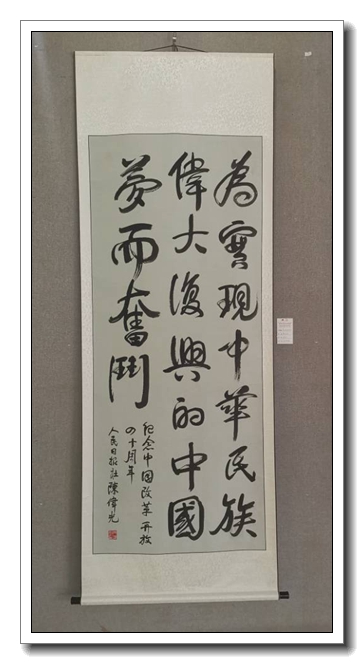 為實現中華民族
偉大復興的中國
夢而奮鬥
紀念中国改革开放
四十周年
人民日报社陳偉光